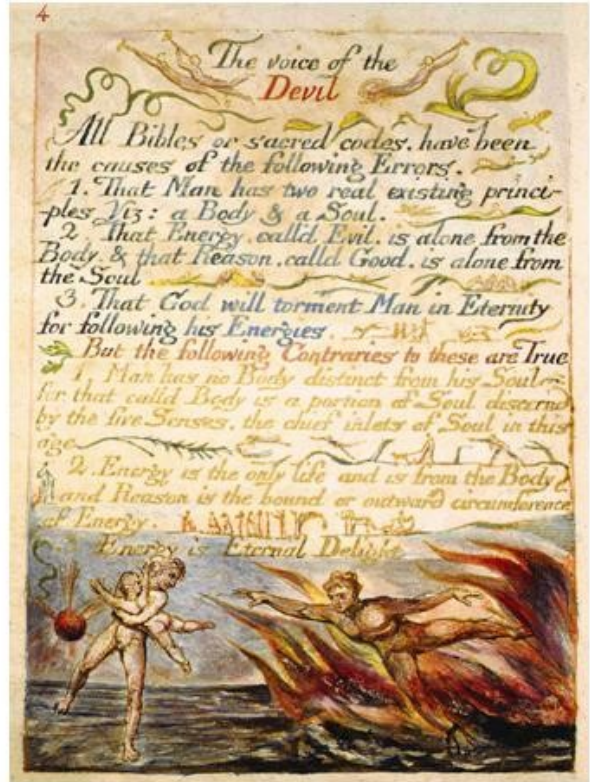 4
The voice of the
Devil
All Bibles or sacred codes. have been
the causes of the following Errors.
1. That Man has two real existing princi-
ples Viz: a Body & a Soul.
2. That Energy. calld Evil. is alone from the
Body. & that Reason. calld Good. is alone from
the Soul
3. That God will torment Man in Eternity
for following his Energies.
But the following Contraries to these are True
1 Man has no Body distinct from his Soul
for that calld Body is a portion of Soul discernd
by the five Senses. the chief inlets of Soul in this
age
2. Energy is the only life and is from the Body
and Reason is the bound or outward circumference
of Energy.
Energy is Eternal Delight